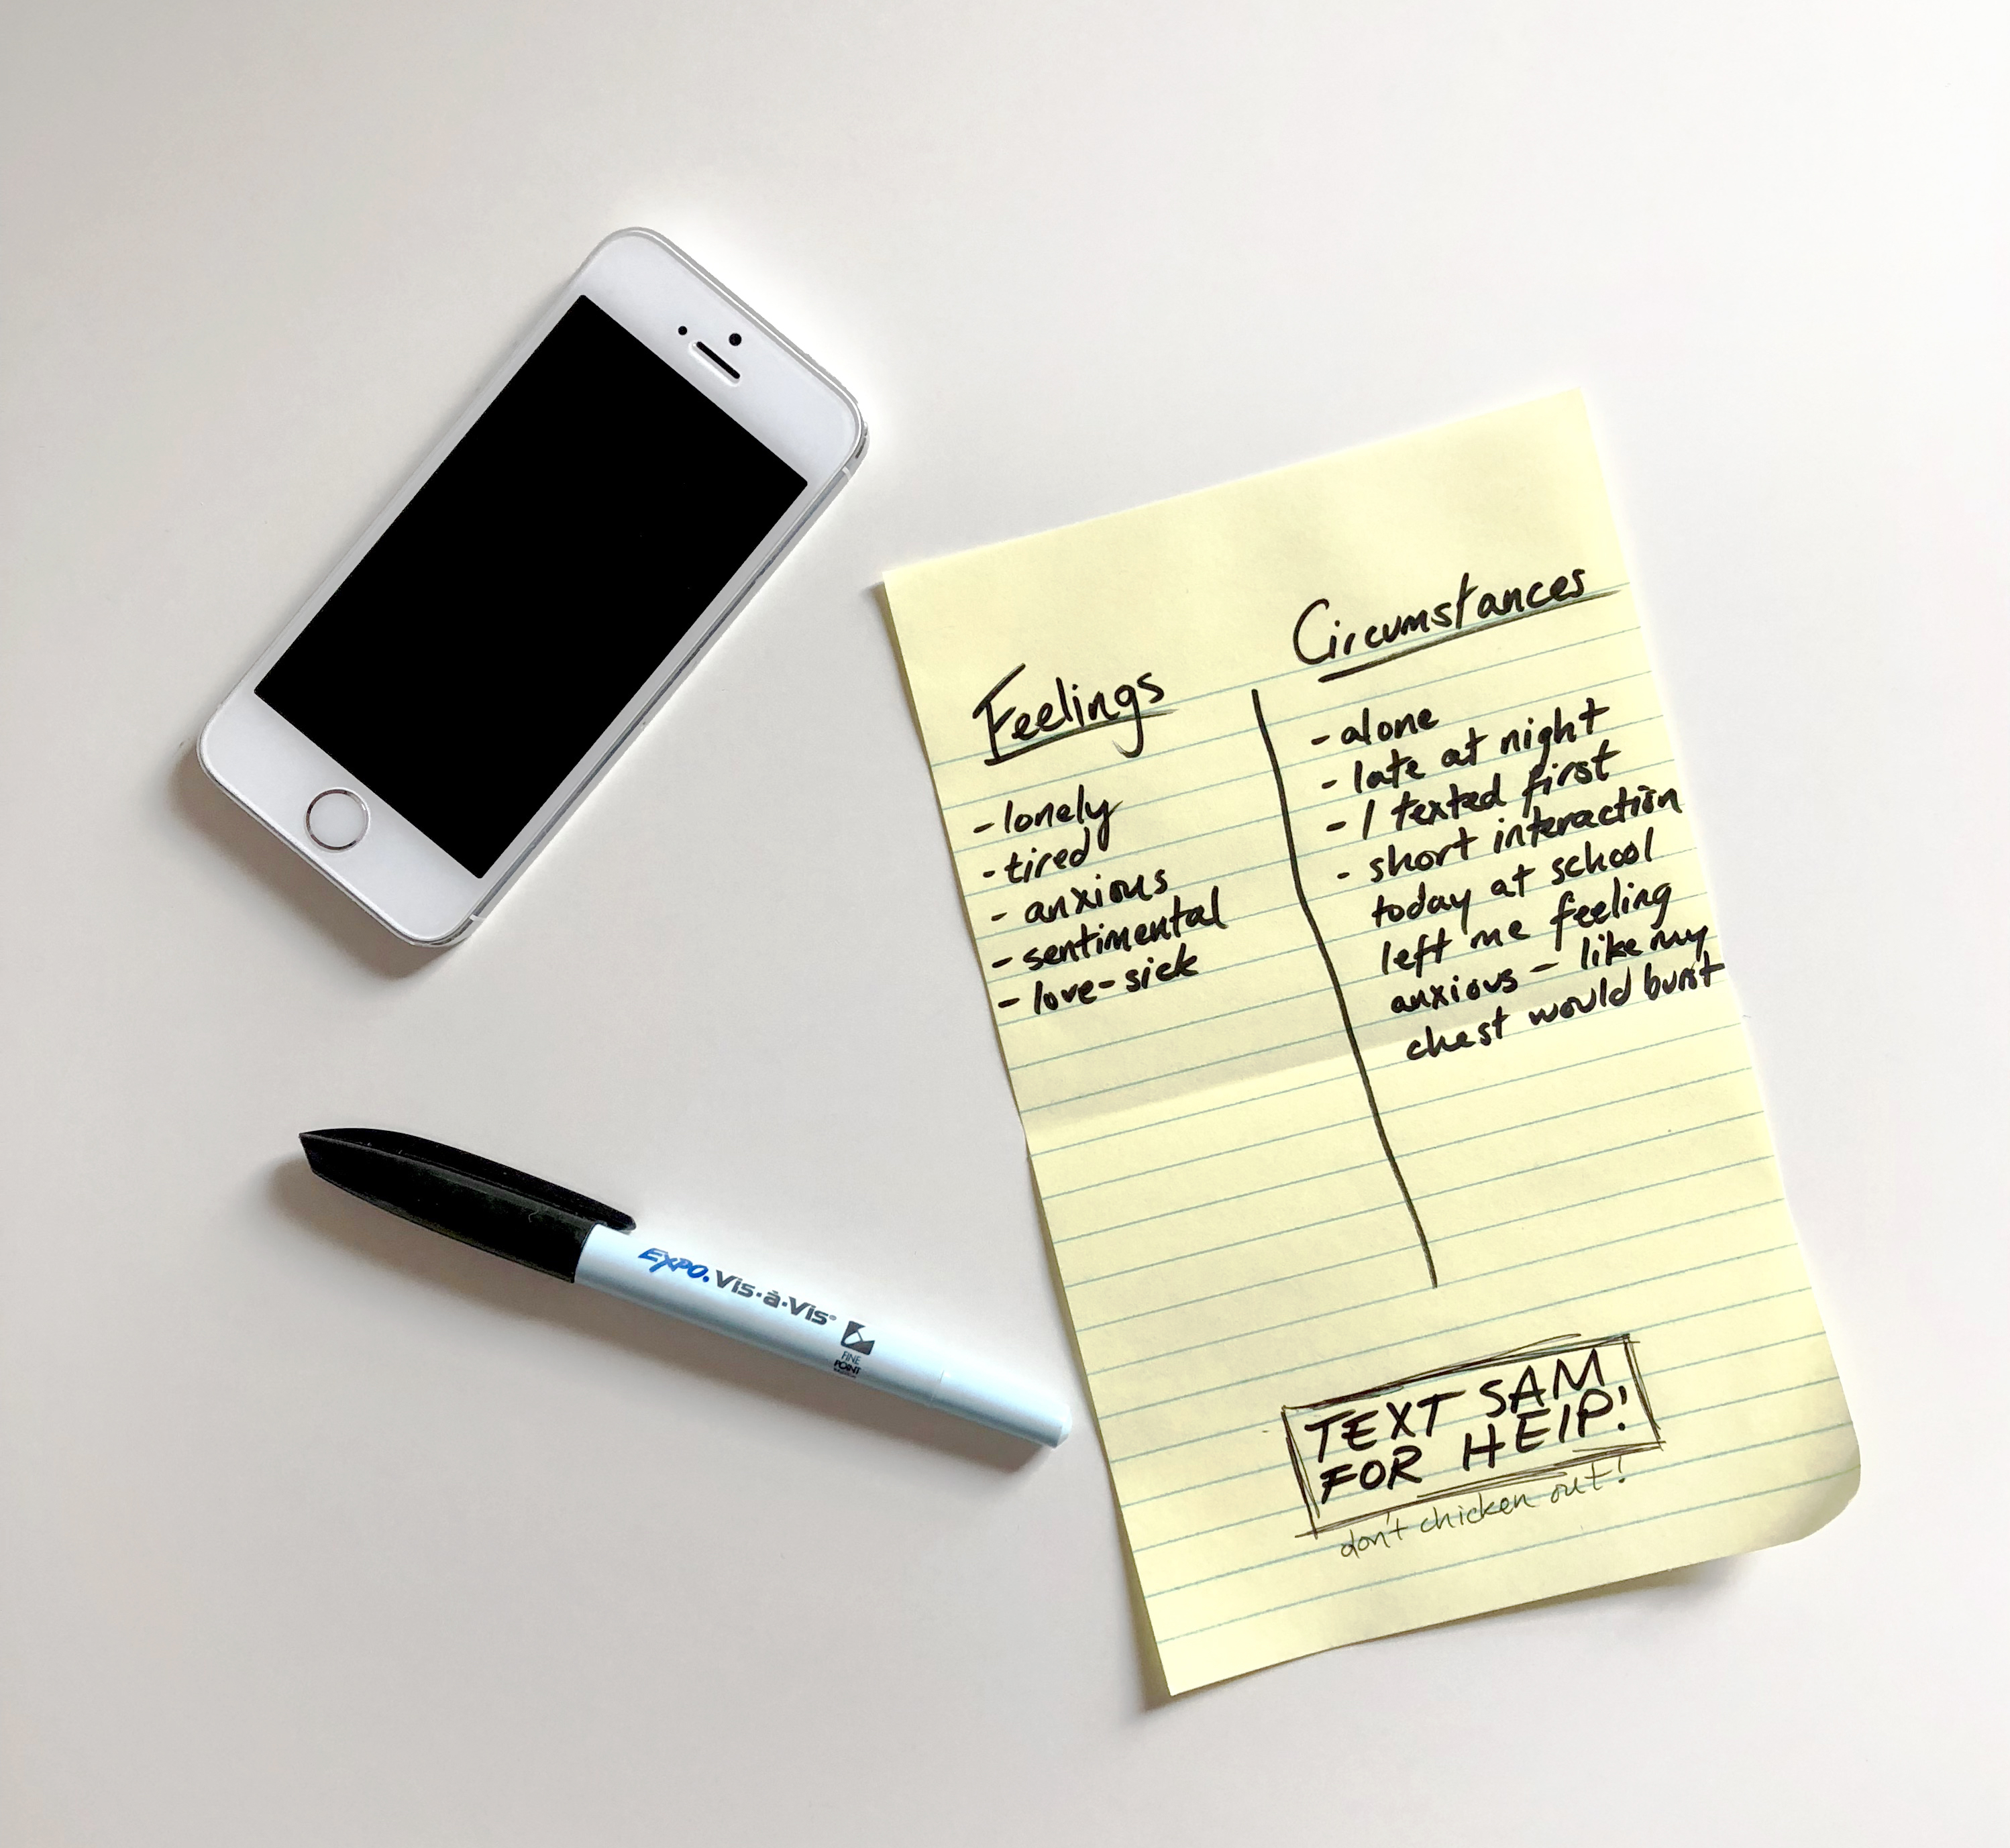 Feelings
- lonely
- tired
- anxious
- sentimental
- love-sick
Circumstances
- alone
- late at night
- I texted first
- short interaction
today at school
left me feeling
anxious - like my
chest would burst
TEXT SAM
FOR HElP!
don't chicken out!
EXPO. Vis·à·Vis®
FINE
POINT